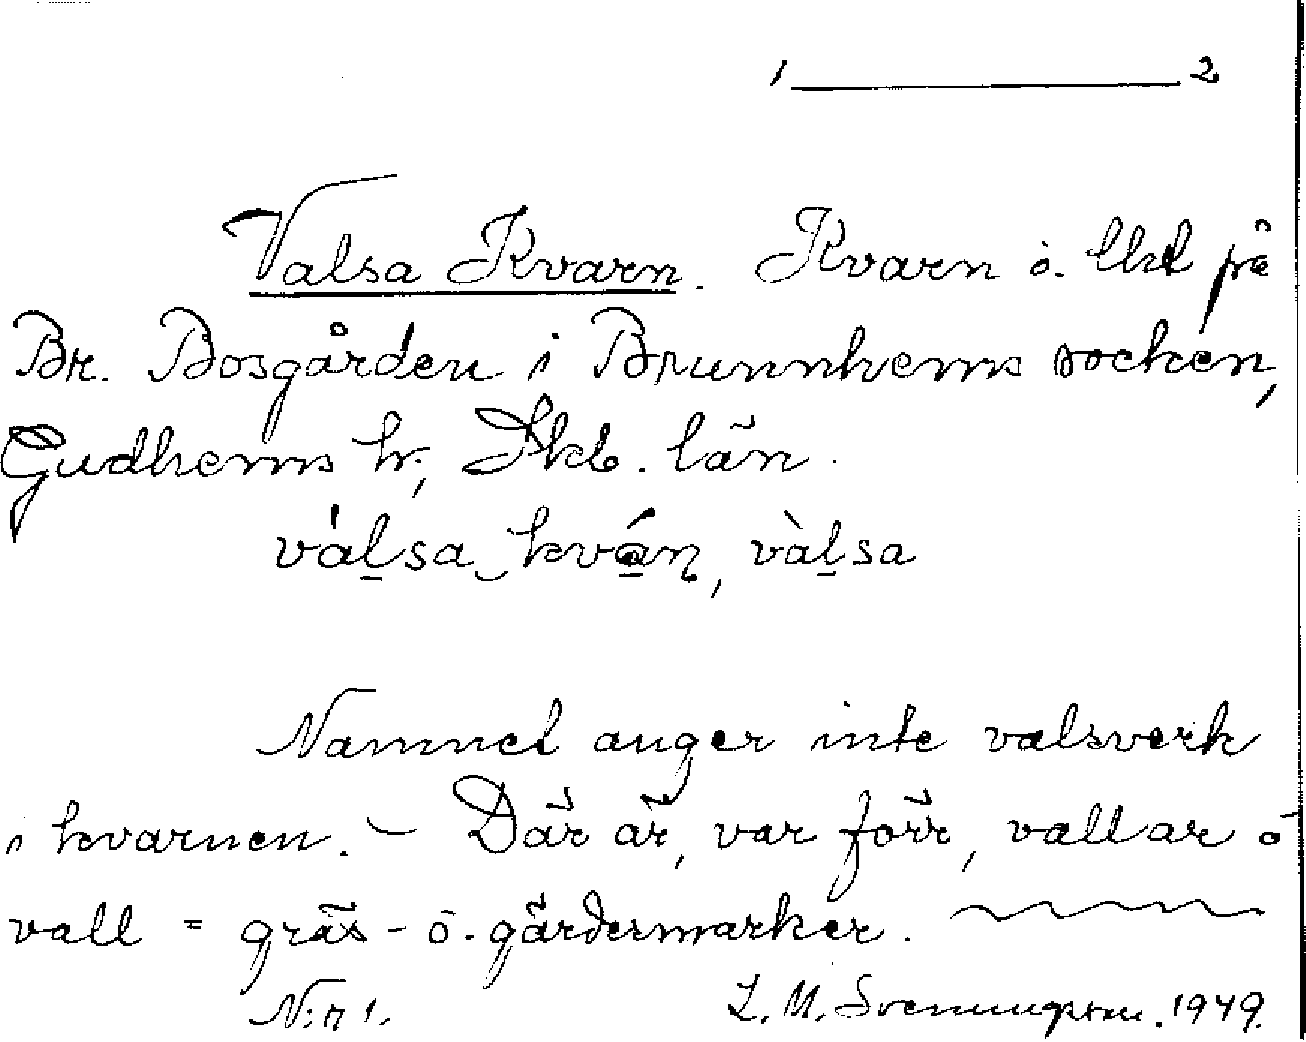 1 2
Valsa Kvarn. Kvarn o. lht på
Br. Bosgården i Brunnhems socken,
Gudhems hr, Skb. län.
vál̲sa kvá̲ṇ, vàl̲sa
Namnet anger inte valsverk
i kvarnen. – Där är, var förr, vallar o
vall = gräs- o. gärdermarker.
N:r 1. L. M. Svenungsson. 1949.